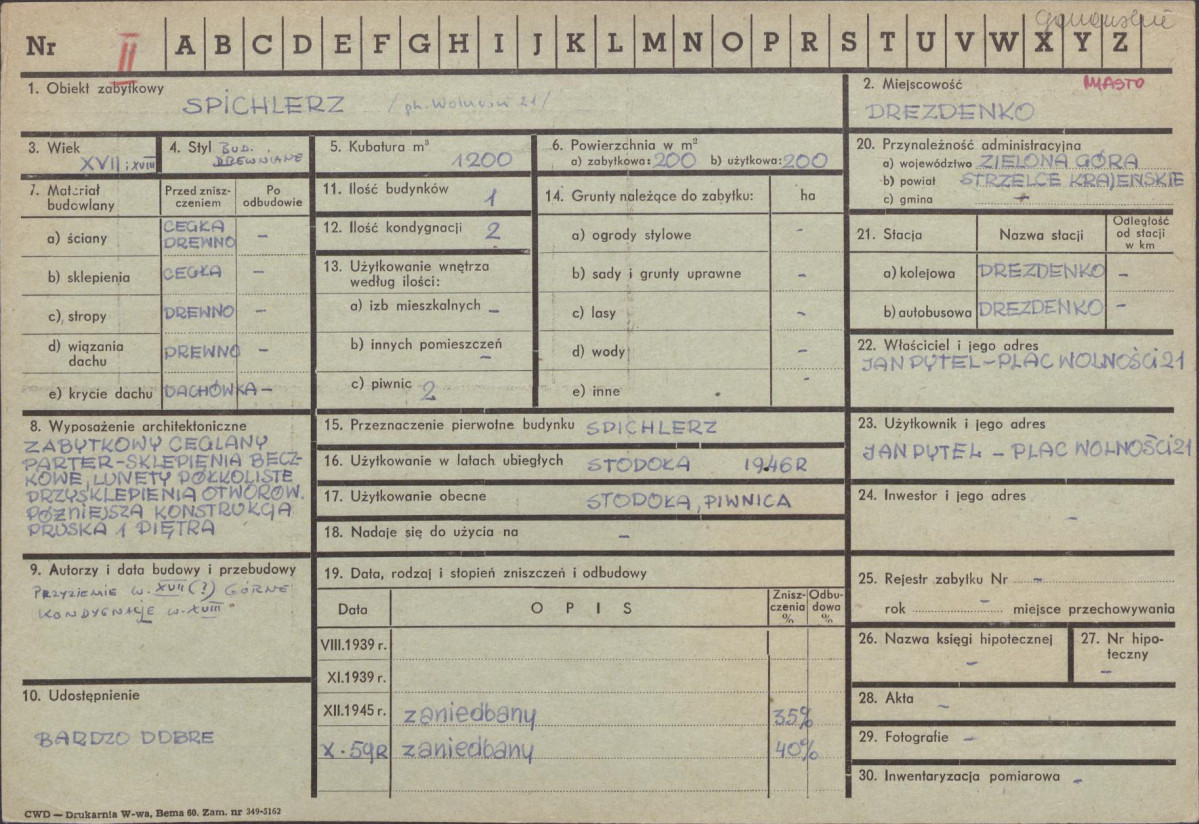 Nr II A B C D E F G H I J K L M N O P R S T U V W X Y Z
1. Obiekt zabytkowy
SPICHLERZ /pl. Wolności 21/
2. Miejscowość MIASTO
DREZDENKO
3. Wiek
XVII; XVIII
4. Styl BUD.
DREWNIANE
5. Kubatura m³
1200
6. Powierzchnia w m²
a) zabytkowa: 200 b) użytkowa: 200
20. Przynależność administracyjna
a) województwo ZIELONA GÓRA
b) powiat STRZELCE KRAJEŃSKIE
c) gmina
7. Materiał budowlany
Przed zniszczeniem
Po odbudowie
a) ściany CEGŁA DREWNO –
b) sklepienia CEGŁA –
c) stropy DREWNO –
d) wiązania dachu DREWNO –
e) krycie dachu DACHÓWKA –
11. Ilość budynków 1
12. Ilość kondygnacji 2
13. Użytkowanie wnętrza
według ilości:
a) izb mieszkalnych –
b) innych pomieszczeń –
c) piwnic 2
14. Grunty należące do zabytku: ha
a) ogrody stylowe -
b) sady i grunty uprawne -
c) lasy -
d) wody -
e) inne -
21. Stacja Nazwa stacji Odległość od stacji w km
a) kolejowa DREZDENKO –
b) autobusowa DREZDENKO –
22. Właściciel i jego adres
JAN PYTEL – PLAC WOLNOŚCI 21
8. Wyposażenie architektoniczne
ZABYTKOWY CEGLANY
PARTER-SKLEPIENIA BECZ-
KOWE, LUNETY PÓŁKOLISTE
PRZYSKLEPIENIA OTWORÓW.
PÓŹNIEJSZA KONSTRUKCJA
PRUSKA 1 PIĘTRA
15. Przeznaczenie pierwotne budynku SPICHLERZ
16. Użytkowanie w latach ubiegłych STODOŁA 1946R
17. Użytkowanie obecne STODOŁA, PIWNICA
18. Nadaje się do użycia na –
23. Użytkownik i jego adres
JAN PYTEL – PLAC WOLNOŚCI 21
24. Inwestor i jego adres
-
9. Autorzy i data budowy i przebudowy
PRZYZIEMIE W. XVII (?) GÓRNE
KONDYGNACJE W. XVIII
19. Data, rodzaj i stopień zniszczeń i odbudowy
Data OPIS Zniszczenia % Odbudowa %
VIII.1939 r.
XI.1939 r.
XII.1945 r. zaniedbany 35%
X-59R zaniedbany 40%
25. Rejestr zabytku Nr -
rok - miejsce przechowywania
26. Nazwa księgi hipotecznej
-
27. Nr hipoteczny
-
28. Akta -
29. Fotografie -
30. Inwentaryzacja pomiarowa -
10. Udostępnienie
BARDZO DOBRE
CWD — Drukarnia W-wa, Bema 60. Zam. nr 349-5162